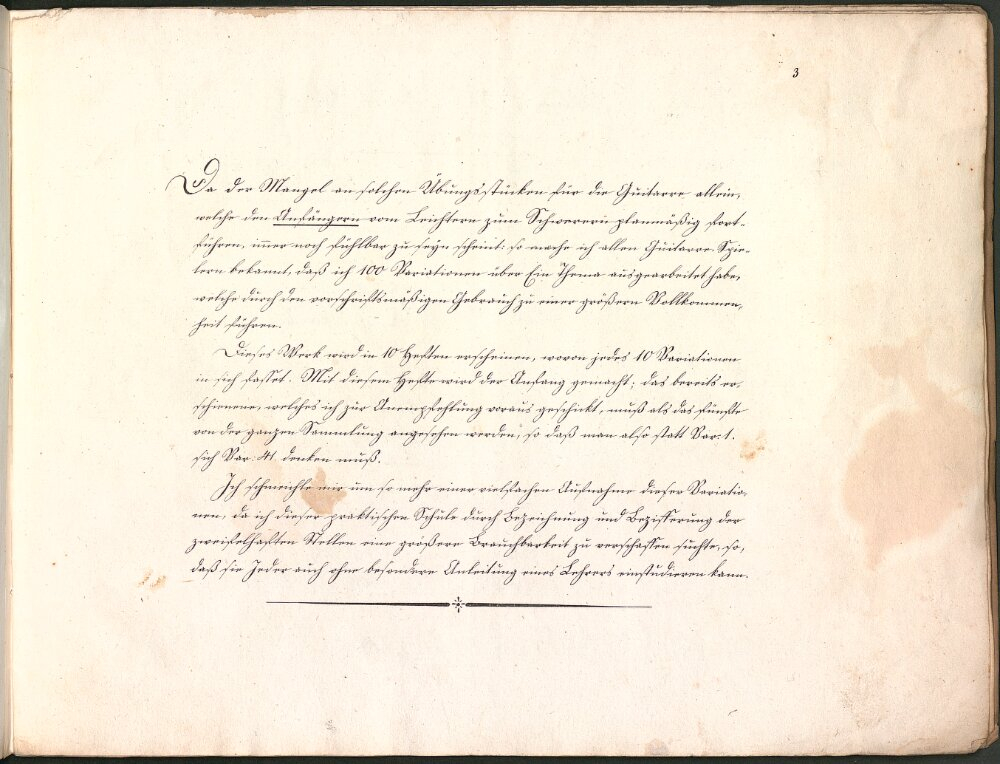 3
Da der Mangel an solchen Übungsstücken für die Guitarre allein,
welche den Anfängern vom Leichtern zum Schwerern planmäßig fort-
führen, immer noch fühlbar zu seyn scheint: so mache ich allen Guitarre-Spie-
lern bekannt, daß ich 100 Variationen über Ein Thema ausgearbeitet habe,
welche durch den vorschriftsmäßigen Gebrauch zu einer größern Vollkommen-
heit führen.
Dieses Werk wird in 10 Heften erscheinen, wovon jedes 10 Variationen
in sich fasset. Mit diesem Hefte wird der Anfang gemacht; das bereits er-
schienene, welches ich zur Anempfehlung voraus geschickt, muß als das fünfte
von der ganzen Sammlung angesehen werden, so daß man also statt Var: 1.
sich Var: 41 denken muß.
Ich schmeichle mir um so mehr einer vielfachen Aufnahme dieser Variatio-
nen, da ich dieser praktischen Schule durch Bezeichnung und Bezifferung der
zweifelhaften Stellen eine größere Brauchbarkeit zu verschaffen suchte, so,
daß sie Jeder auch ohne besondere Anleitung eines Lehrers einstudieren kann.